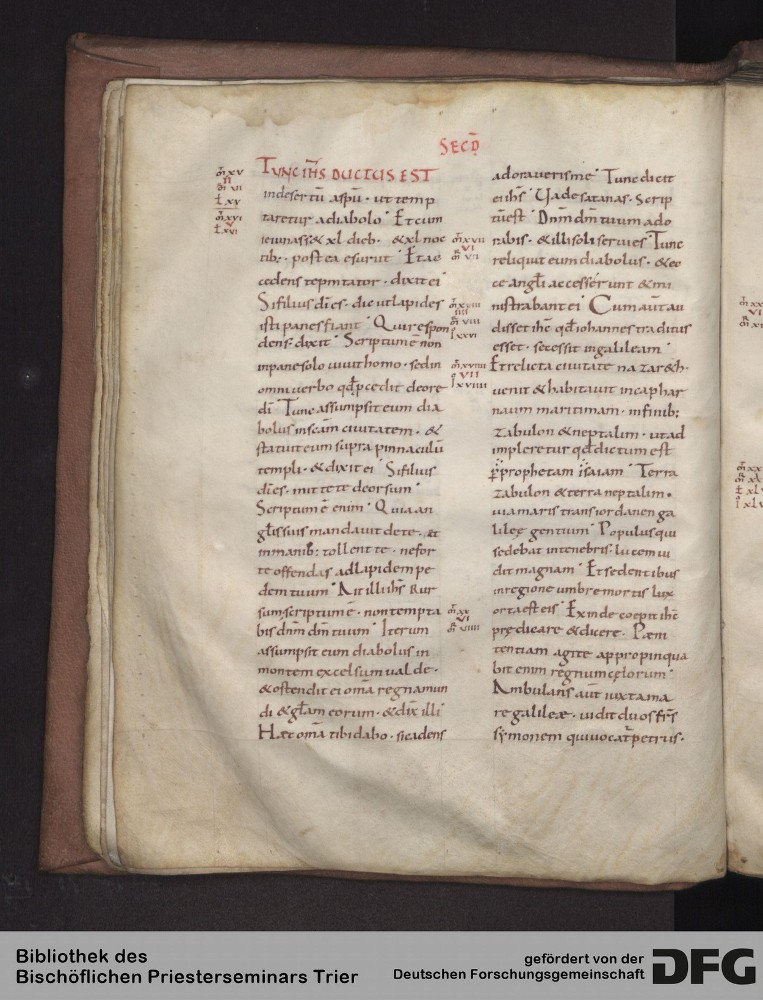 SECD̄
TUNC IH̄S DUCTUS EST
in desertū a sp̄u · ut temp
taretur a diabolo · Et cum
ieiunass& xl dieb· & xl noc
tib; · postea esuriit · Et ac
cedens temptator · dixit ei
Si filius dī es · dic ut lapides
isti panes fiant · Qui respon
dens · dixit · Scriptum ē non
in pane solo vivit homo · sed in
omni verbo qđ pcedit de ore
dī · Tunc assumpsit eum dia
bolus in sc̄am civitatem · &
statuit eum supra pinnaculū
templi · & dixit ei · Si filius
dī es · mitte te deorsum
Scriptum ē enim · Quia an
gl̄is suis mandavit de te · et
in manib; tollent te · ne for
te offendas ad lapidem pe
dem tuum · Ait illi ih̄s Rur
sum scriptum ē · non tempta
bis dn̄m dm̄ tuum · Iterum
assumpsit eum diabolus in
montem excelsum valde ·
& ostendit ei om̄a regna mun
di & gl̄am eorum · & dix̄ illi
Haec om̄a tibi dabo · si cadens
adoraveris me · Tunc dicit
ei ih̄s · Vade satanas · Scrip
tū est · Dn̄m dm̄ tuum ado
rabis · & illi soli servies · Tunc
reliquit eum diabolus · & ec
ce angl̄i accesserunt & mi
nistrabant ei · Cum aūt au
disset ih̄c qđ iohannes traditus
esset · secessit in galileam
Et relicta civitate nazar&h·
venit & habitavit in caphar
naum maritimam · in finib;
zabulon & neptalim · ut ad
impleretur qđ dictum est
p prophetam isaiam · Terra
zabulon & terra neptalim·
via maris trans iordanen ga
lileę gentium · Populus qui
sedebat in tenebris · lucem vi
dit magnam · Et sedentibus
in regione umbre mortis lux
orta est eis · Exinde coepit ih̄c
prędicare & dicere · Paeni
tentiam agite appropinqua
bit enim regnum cęlorum
Ambulans aūt iuxta ma
re galileae · vidit duos fr̄s
symonem qui vocat̄ petrus ·
Bibliothek des
Bischöflichen Priesterseminars Trier
gefördert von der
Deutschen Forschungsgemeinschaft
DFG